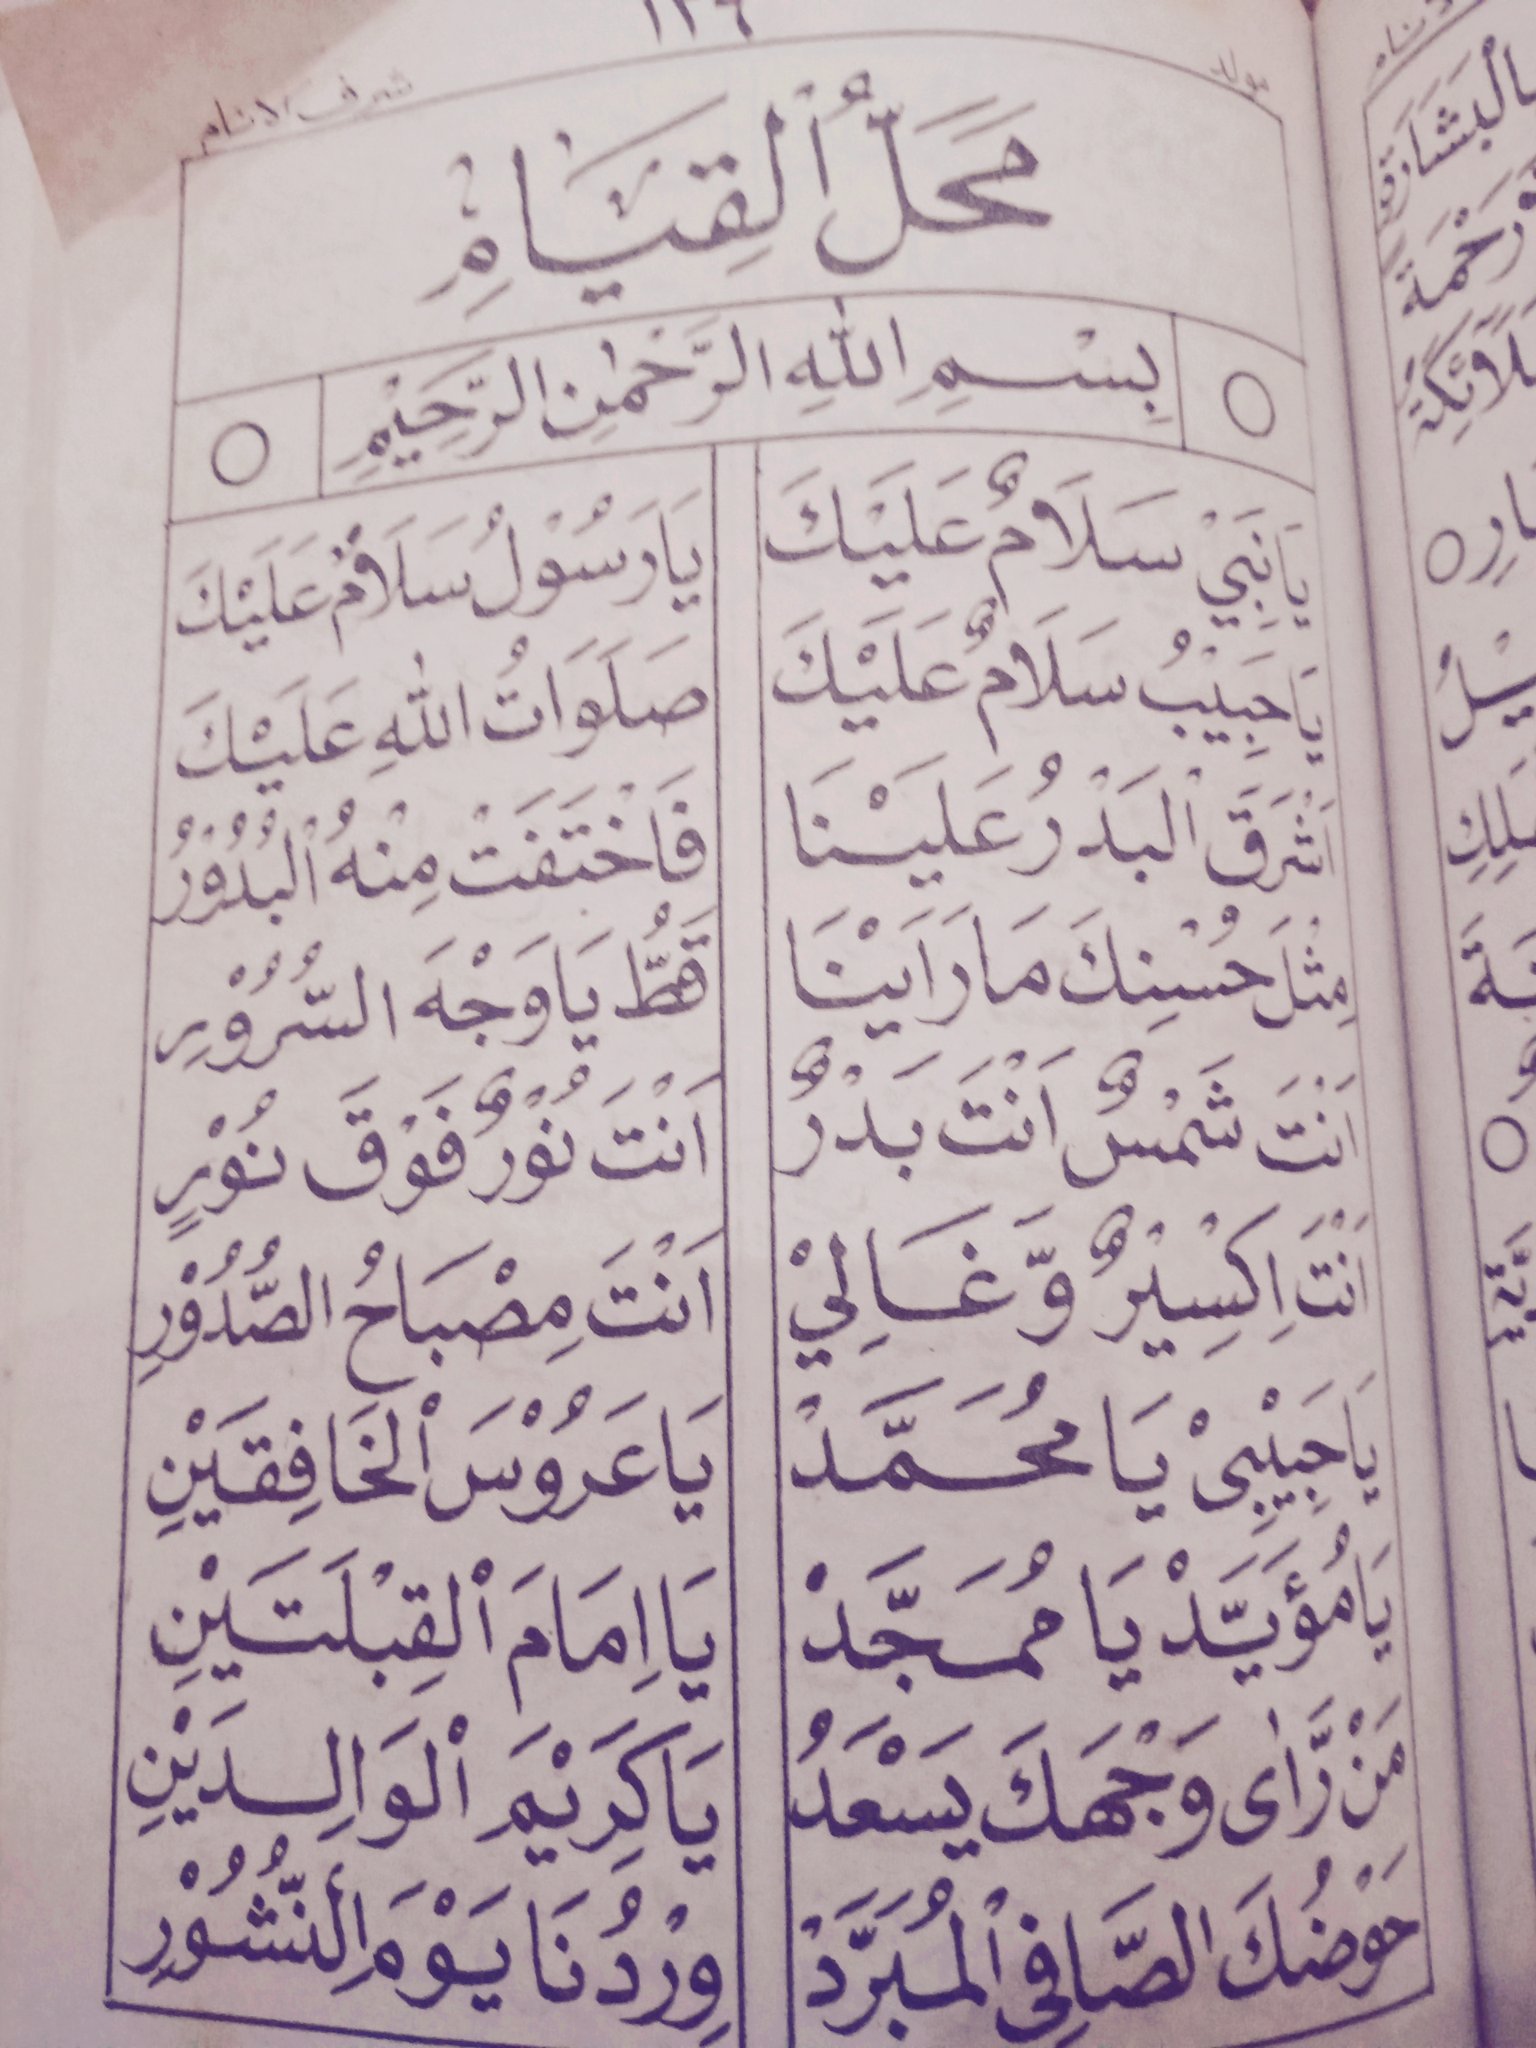 ١٢٦
مولد شرف الانام
مَحَلُّ ٱلْقِيَامِ
بِسْمِ اللهِ الرَّحْمٰنِ الرَّحِيْمِ
يَا نَبِيْ سَلَامٌ عَلَيْكَ يَا رَسُوْلُ سَلَامٌ عَلَيْكَ
يَا حَبِيْبُ سَلَامٌ عَلَيْكَ صَلَوَاتُ اللهِ عَلَيْكَ
اَشْرَقَ الْبَدْرُ عَلَيْنَا فَاخْتَفَتْ مِنْهُ الْبُدُوْرُ
مِثْلَ حُسْنِكَ مَا رَاَيْنَا قَطُّ يَا وَجْهَ السُّرُوْرِ
اَنْتَ شَمْسٌ اَنْتَ بَدْرٌ اَنْتَ نُوْرٌ فَوْقَ نُوْرٍ
اَنْتَ اِكْسِيْرٌ وَّغَالِيْ اَنْتَ مِصْبَاحُ الصُّدُوْرِ
يَا حَبِيْبِيْ يَا مُحَمَّدْ يَا عَرُوْسَ الْخَافِقَيْنِ
يَا مُؤَيَّدْ يَا مُمَجَّدْ يَا اِمَامَ الْقِبْلَتَيْنِ
مَنْ رَّاٰى وَجْهَكَ يَسْعَدُ يَا كَرِيْمَ الْوَالِدَيْنِ
حَوْضُكَ الصَّافِى الْمُبَرَّدْ وِرْدُنَا يَوْمَ النُّشُوْرِ